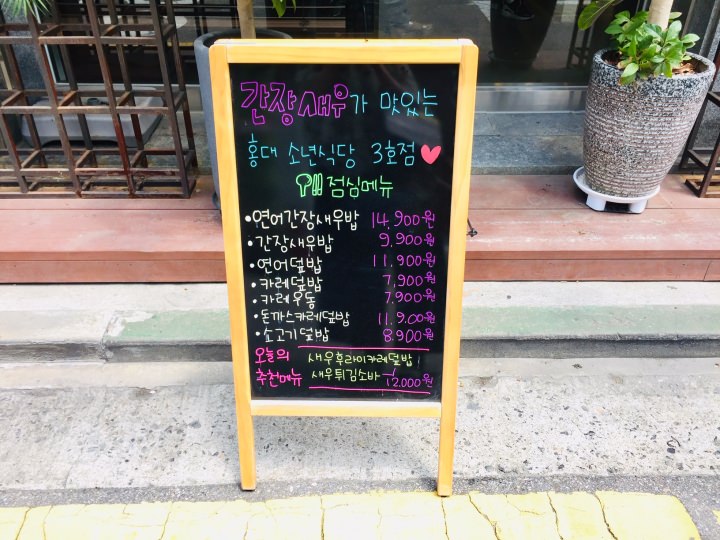 간장새우가 맛있는
홍대 소년식당 3호점
점심메뉴
•연어간장새우밥 14,900원
•간장새우밥 9,900원
•연어덮밥 11,900원
•카레덮밥 7,900원
•카레우동 7,900원
•돈까스카레덮밥 11,9.00원
•소고기덮밥 8,900원
오늘의 새우후라이카레덮밥
추천메뉴 새우튀김소바 12,000원